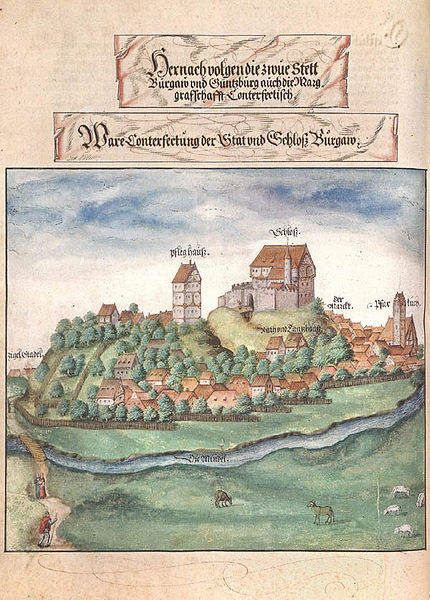 Hernach volgen die zwue Stett
Burgaw und Guntzburg auch die Marg
grafschafft Conterfectisch
Ware Conterfectung der Stat und Schloß Burgaw.
Schloß.
Pfleghauß.
der
Marckt.
Pfar
kirch.
Rath und
Ziegel Stadel.
Die Mindel.